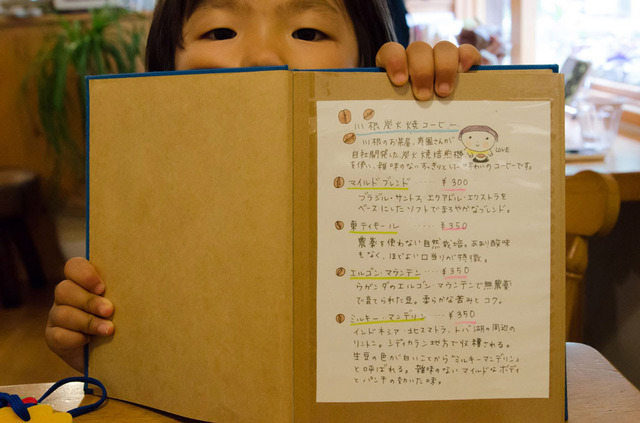 川根炭火焼コーヒー
川根のお茶屋、寿園さんが
自社開発した炭火焼焙煎機
を使い、雑味のないすっきりとした味わいのコーヒーです。
LOVE
マイルドブレンド ････ ¥300
ブラジル・サントス、エクアドル・エクストラを
ベースにしたソフトでまろやかなブレンド。
東ティモール ････ ¥350
農薬を使わない自然栽培。あまり酸味
もなく、ほどよい口当りが特徴。
エルゴン・マウンテン ････ ¥350
ウガンダのエルゴン・マウンテンで無農薬
で育てられた豆。柔らかな苦みとコク。
ミルキー・マンデリン ････ ¥350
インドネシア・北スマトラ、トバ湖の周辺の
リントン。シディカラン地方で収穫される。
生豆の色が白いことから"ミルキーマンデリン"
と呼ばれる。雑味のないマイルドなボディ
とパンチの効いた味。